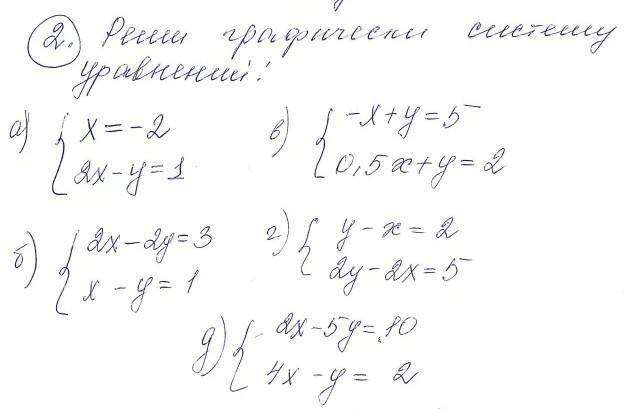 2. Реши графически систему
уравнений:
а) { x = -2
2x - y = 1
б) { 2x - 2y = 3
x - y = 1
в) { -x + y = 5
0,5x + y = 2
г) { y - x = 2
2y - 2x = 5
д) { 2x - 5y = 10
4x - y = 2